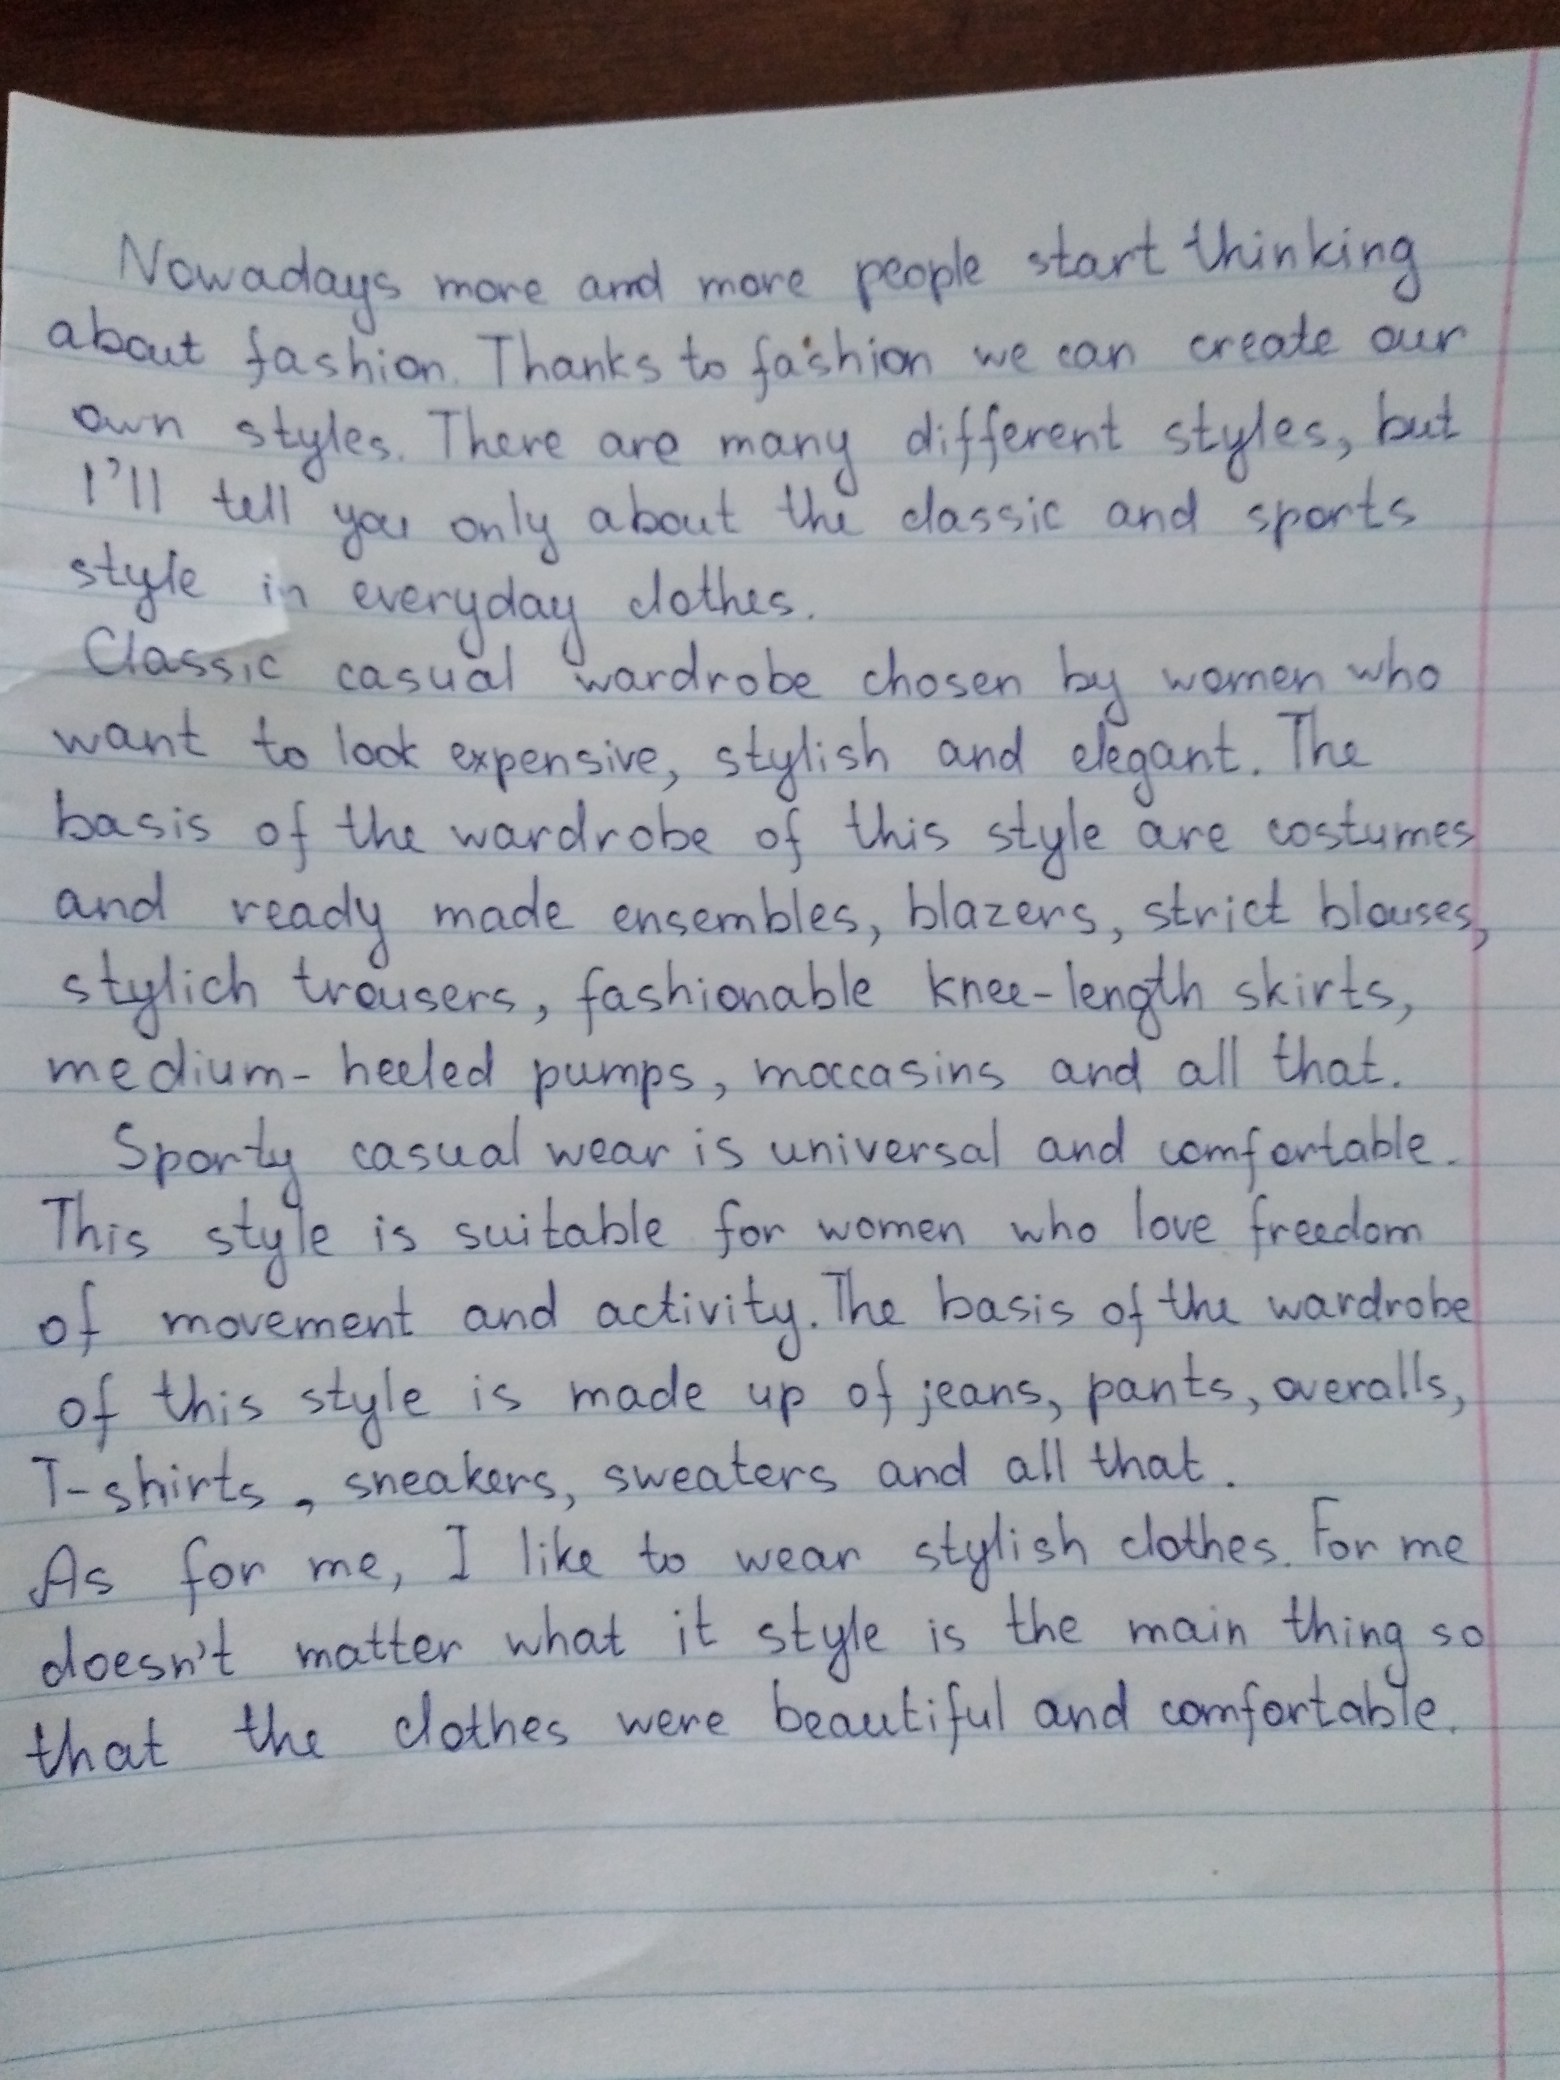 Nowadays more and more people start thinking
about fashion. Thanks to fashion we can create our
own styles. There are many different styles, but
I'll tell you only about the classic and sports
style in everyday clothes.
Classic casual wardrobe chosen by women who
want to look expensive, stylish and elegant. The
basis of the wardrobe of this style are costumes
and ready made ensembles, blazers, strict blouses,
stylich trousers, fashionable knee-length skirts,
medium-heeled pumps, moccasins and all that.
Sporty casual wear is universal and comfortable.
This style is suitable for women who love freedom
of movement and activity. The basis of the wardrobe
of this style is made up of jeans, pants, overalls,
T-shirts, sneakers, sweaters and all that.
As for me, I like to wear stylish clothes. For me
doesn't matter what it style is the main thing so
that the clothes were beautiful and comfortable.